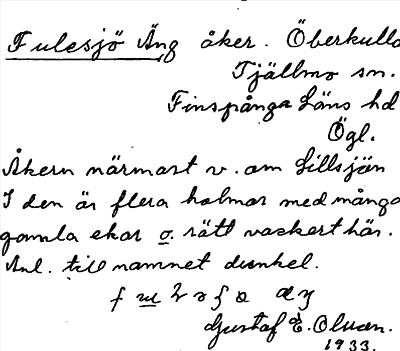 Fulesjö Äng åker. Överkulla
Tjällmo sn.
Finspånga Läns hd
Ögl.
Åkern närmast v. om Lillsjön
I den är flera holmar med många
gamla ekar o. rätt vackert här.
Anl. till namnet dunkel.
Gustaf E. Olsson.
1933.